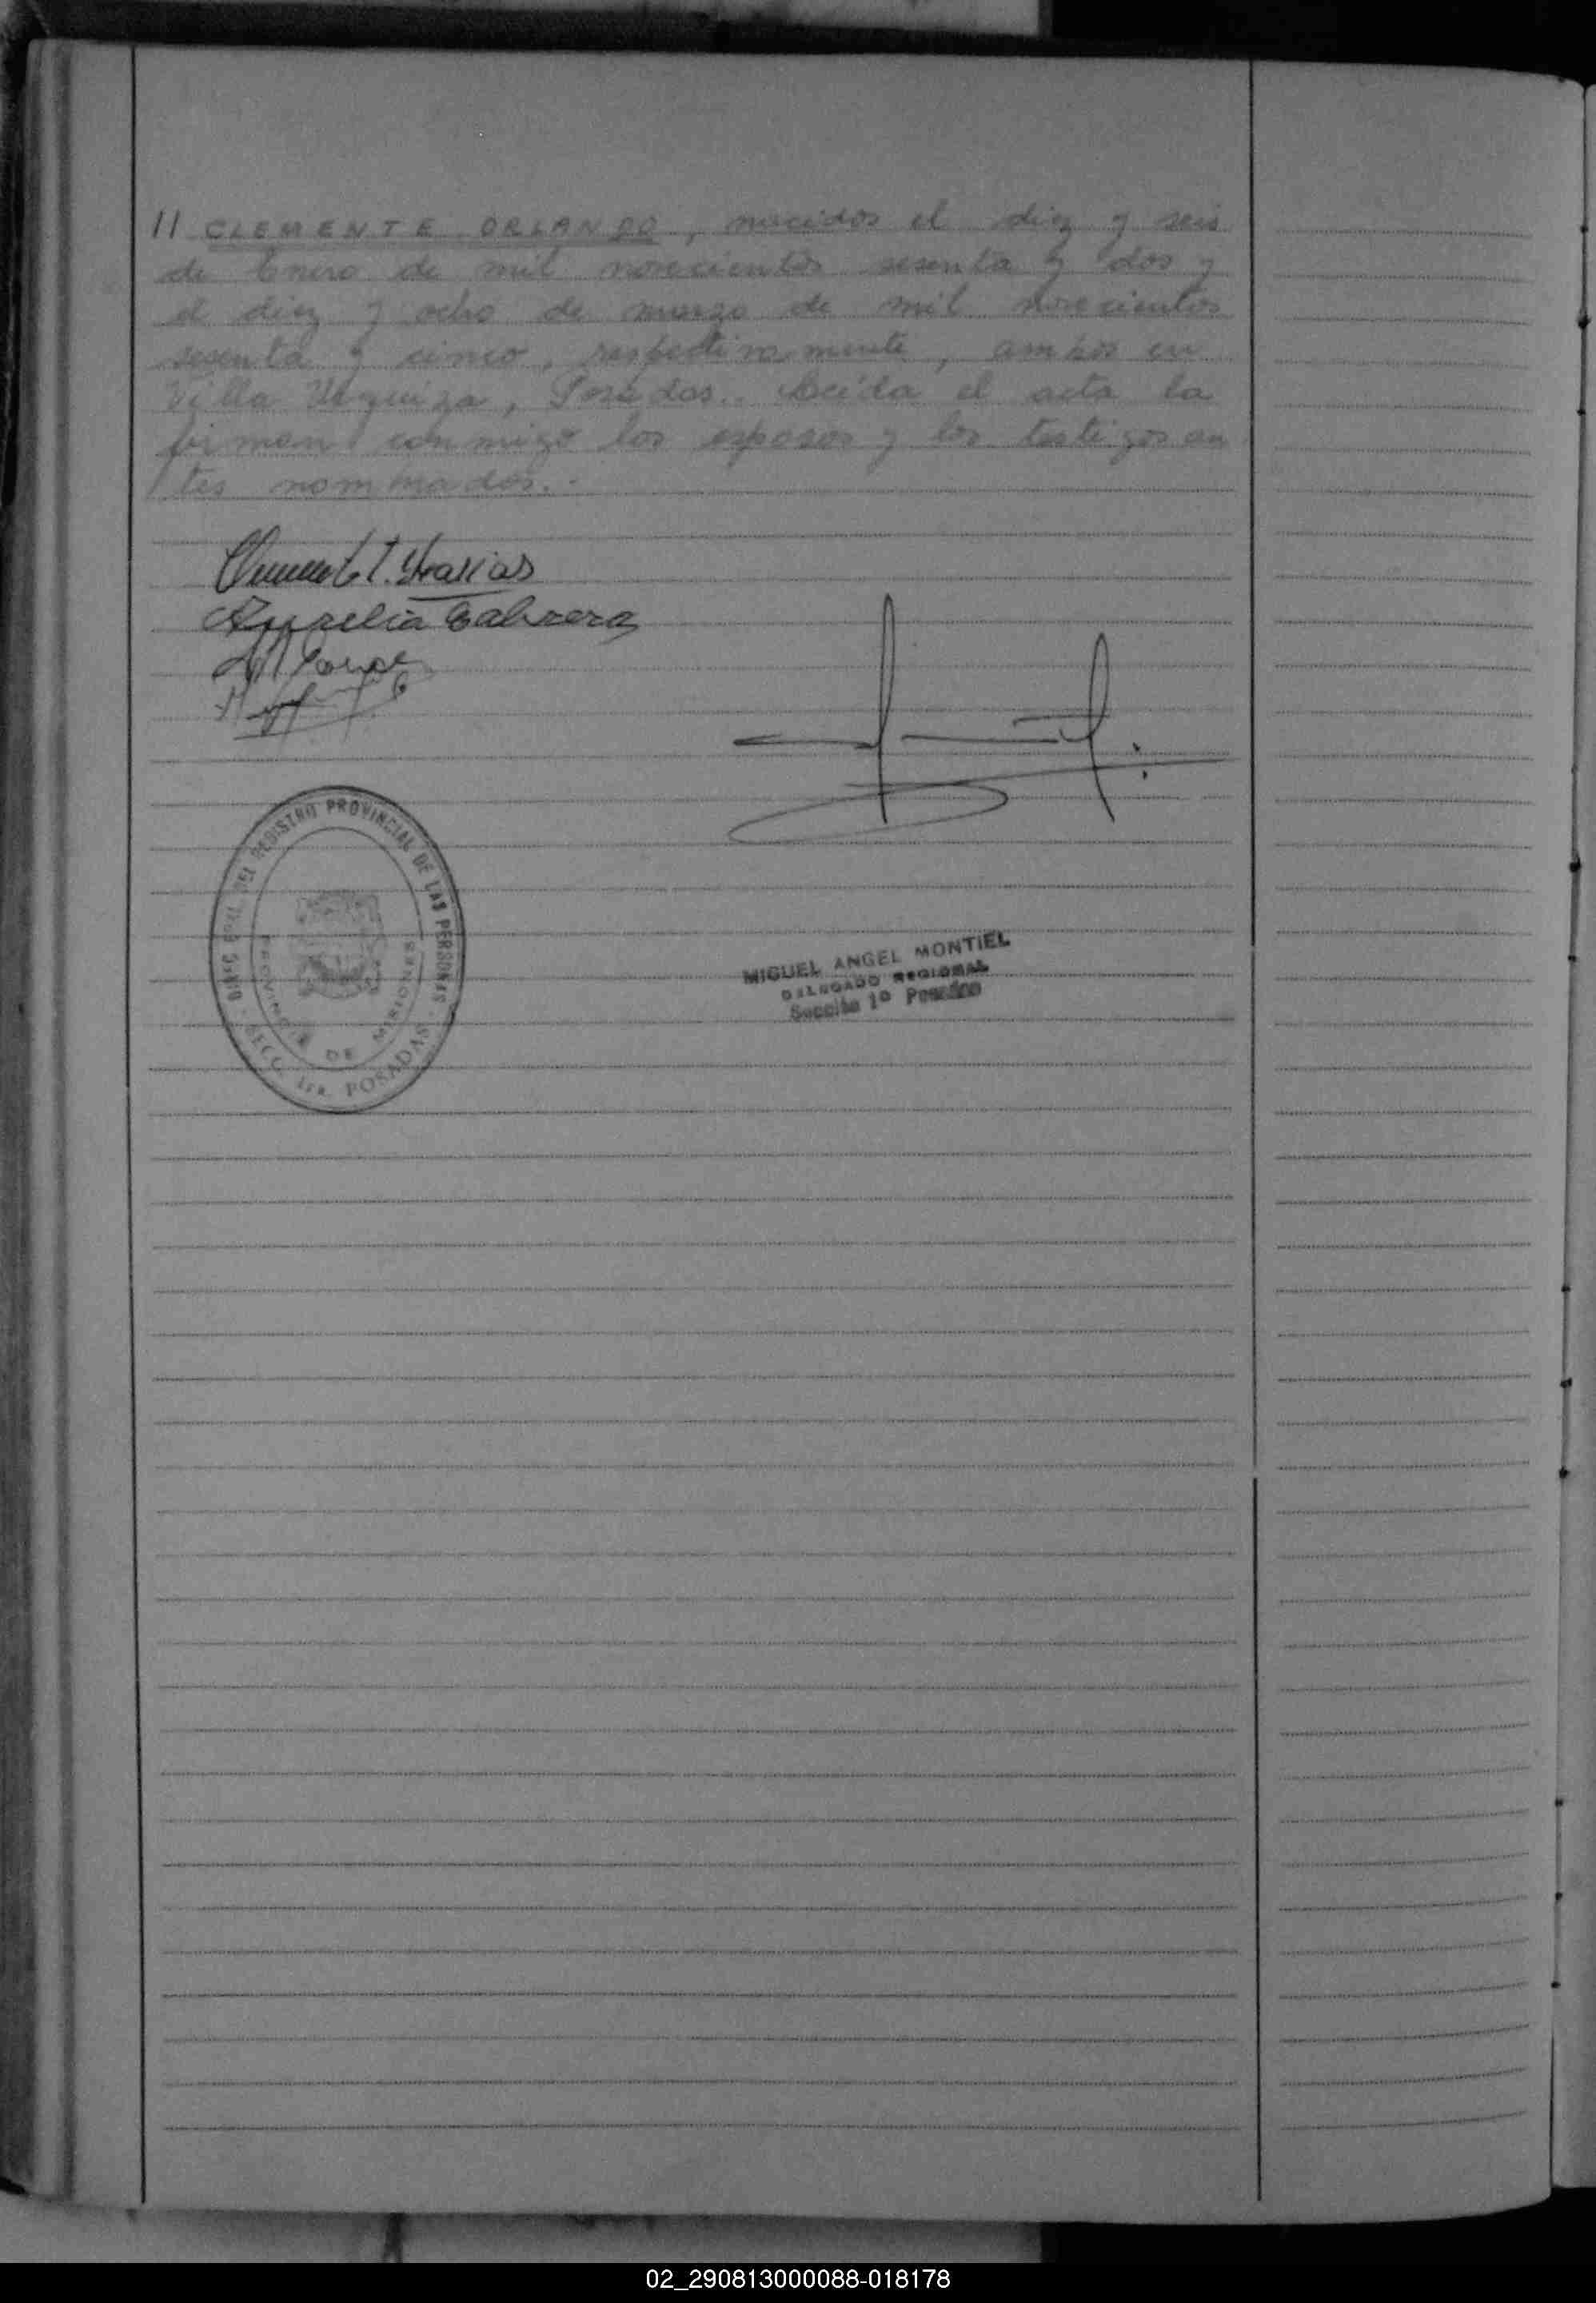 // CLEMENTE ORLANDO, nacidos el diez y seis
de Enero de mil novecientos sesenta y dos y
el diez y ocho de marzo de mil novecientos
sesenta y cinco, respectivamente, ambos en
Villa Urquiza, Posadas.. Leída el acta la
firman conmigo los esposos y los testigos an
tes nombrados..
Aurelia Cabrera
DIREC. GRAL. DEL REGISTRO PROVINCIAL DE LAS PERSONAS
PROVINCIA DE MISIONES
SECC. 1ra. POSADAS
MIGUEL ANGEL MONTIEL
DELEGADO REGIONAL
Sección 1º Posadas
02_290813000088-018178